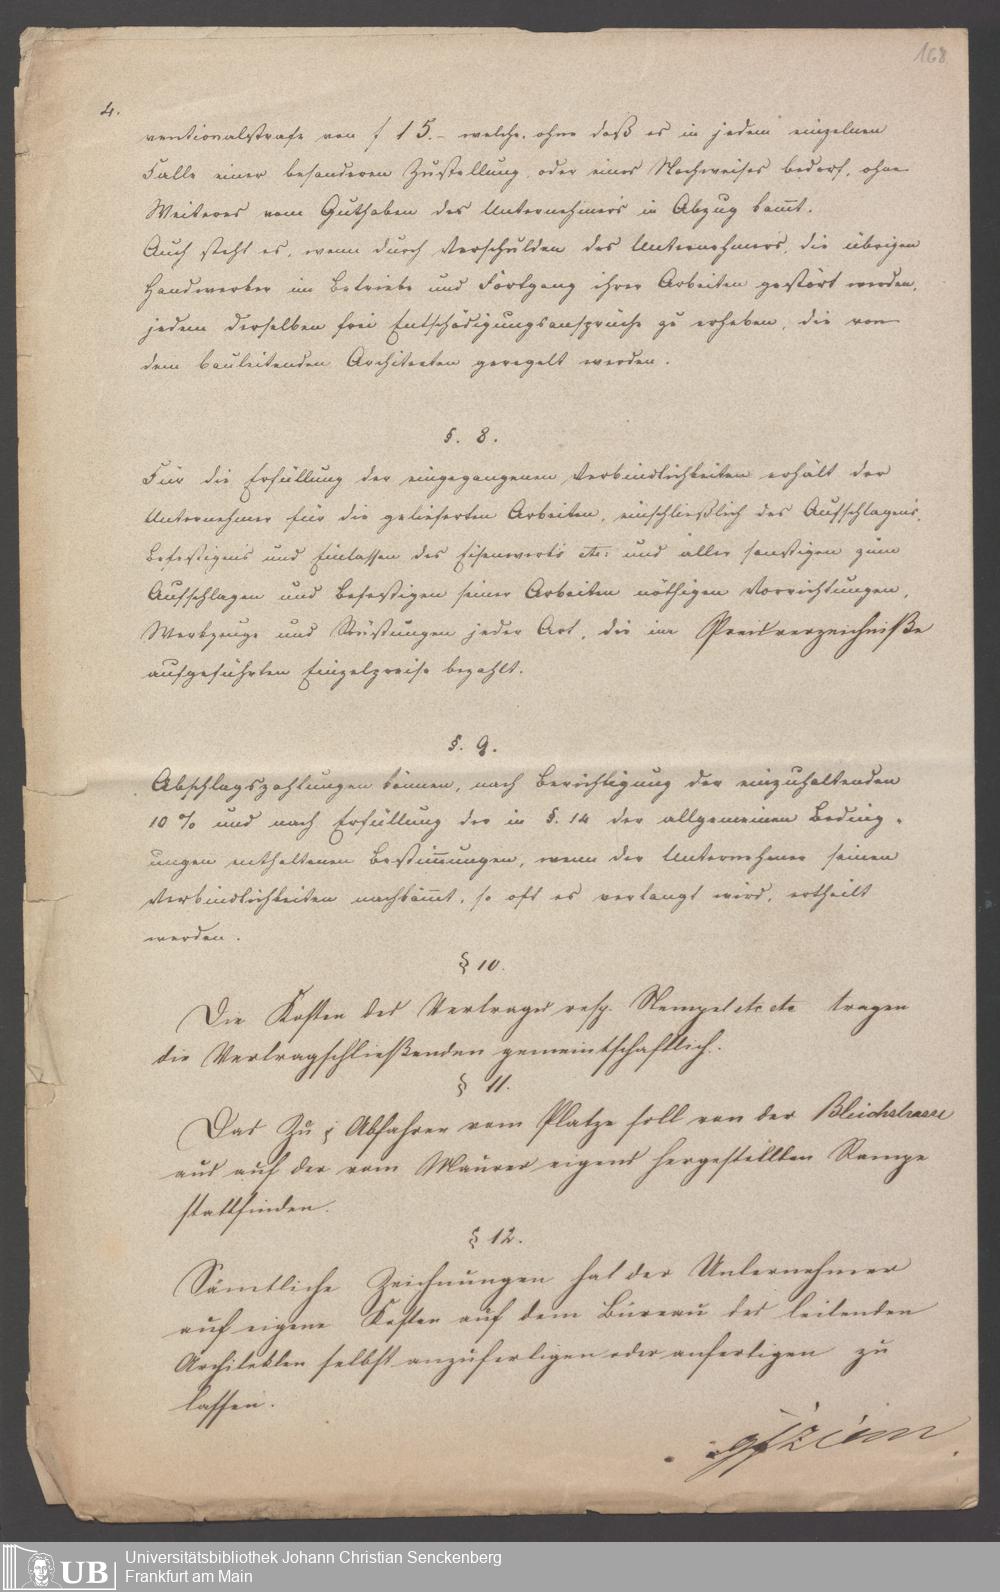 168
4.
ventionalstrafe von f 15.- welche, ohne daß es in jedem einzelnen
Falle einer besonderen Zustellung oder eines Nachweises bedarf, ohne
Weiteres vom Guthaben des Unternehmers in Abzug kom̅t.
Auch steht es, wenn durch Verschulden des Unternehmers, die übrigen
Handwerker im Betriebe und Fortgang ihrer Arbeiten gestört werden,
jedem derselben frei Entschädigungsansprüche zu erheben, die von
dem bauleitenden Architecten geregelt werden.
§. 8.
Für die Erfüllung der eingegangenen Verbindlichkeiten erhält der
Unternehmer für die gelieferten Arbeiten, einschließlich des Aufschlagens,
Befestigens und Einlassen des Eisenwerks etc: und aller sonstigen zum
Aufschlagen und Befestigen seiner Arbeiten nöthigen Vorrichtungen,
Werkzeuge und Rüstungen jeder Art, die im Preisverzeichniße
aufgeführten Einzelpreise bezahlt.
§. 9.
Abschlagszahlungen können, nach Berichtigung der einzuhaltenden
10 % und nach Erfüllung der in §. 14 der allgemeinen Beding-
ungen enthaltenen Bestim̅ungen, wenn der Unternehmer seinen
Verbindlichkeiten nachkom̅t, so oft es verlangt wird, ertheilt
werden.
§ 10.
Die Kosten des Vertrages resp. Stempel etc etc tragen
die Vertragschließenden gemeintschaftlich.
§ 11.
Das Zu & Abfahren vom Platze soll von der Bleichstrasse
aus auf der vom Maurer eigens hergestellten Rampe
stattfinden.
§ 12.
Sämtliche Zeichnungen hat der Unternehmer
auf eigene Kosten auf dem Büreau des leitenden
Architekten selbst anzufertigen oder anfertigen zu
lassen.
Universitätsbibliothek Johann Christian Senckenberg
UB Frankfurt am Main